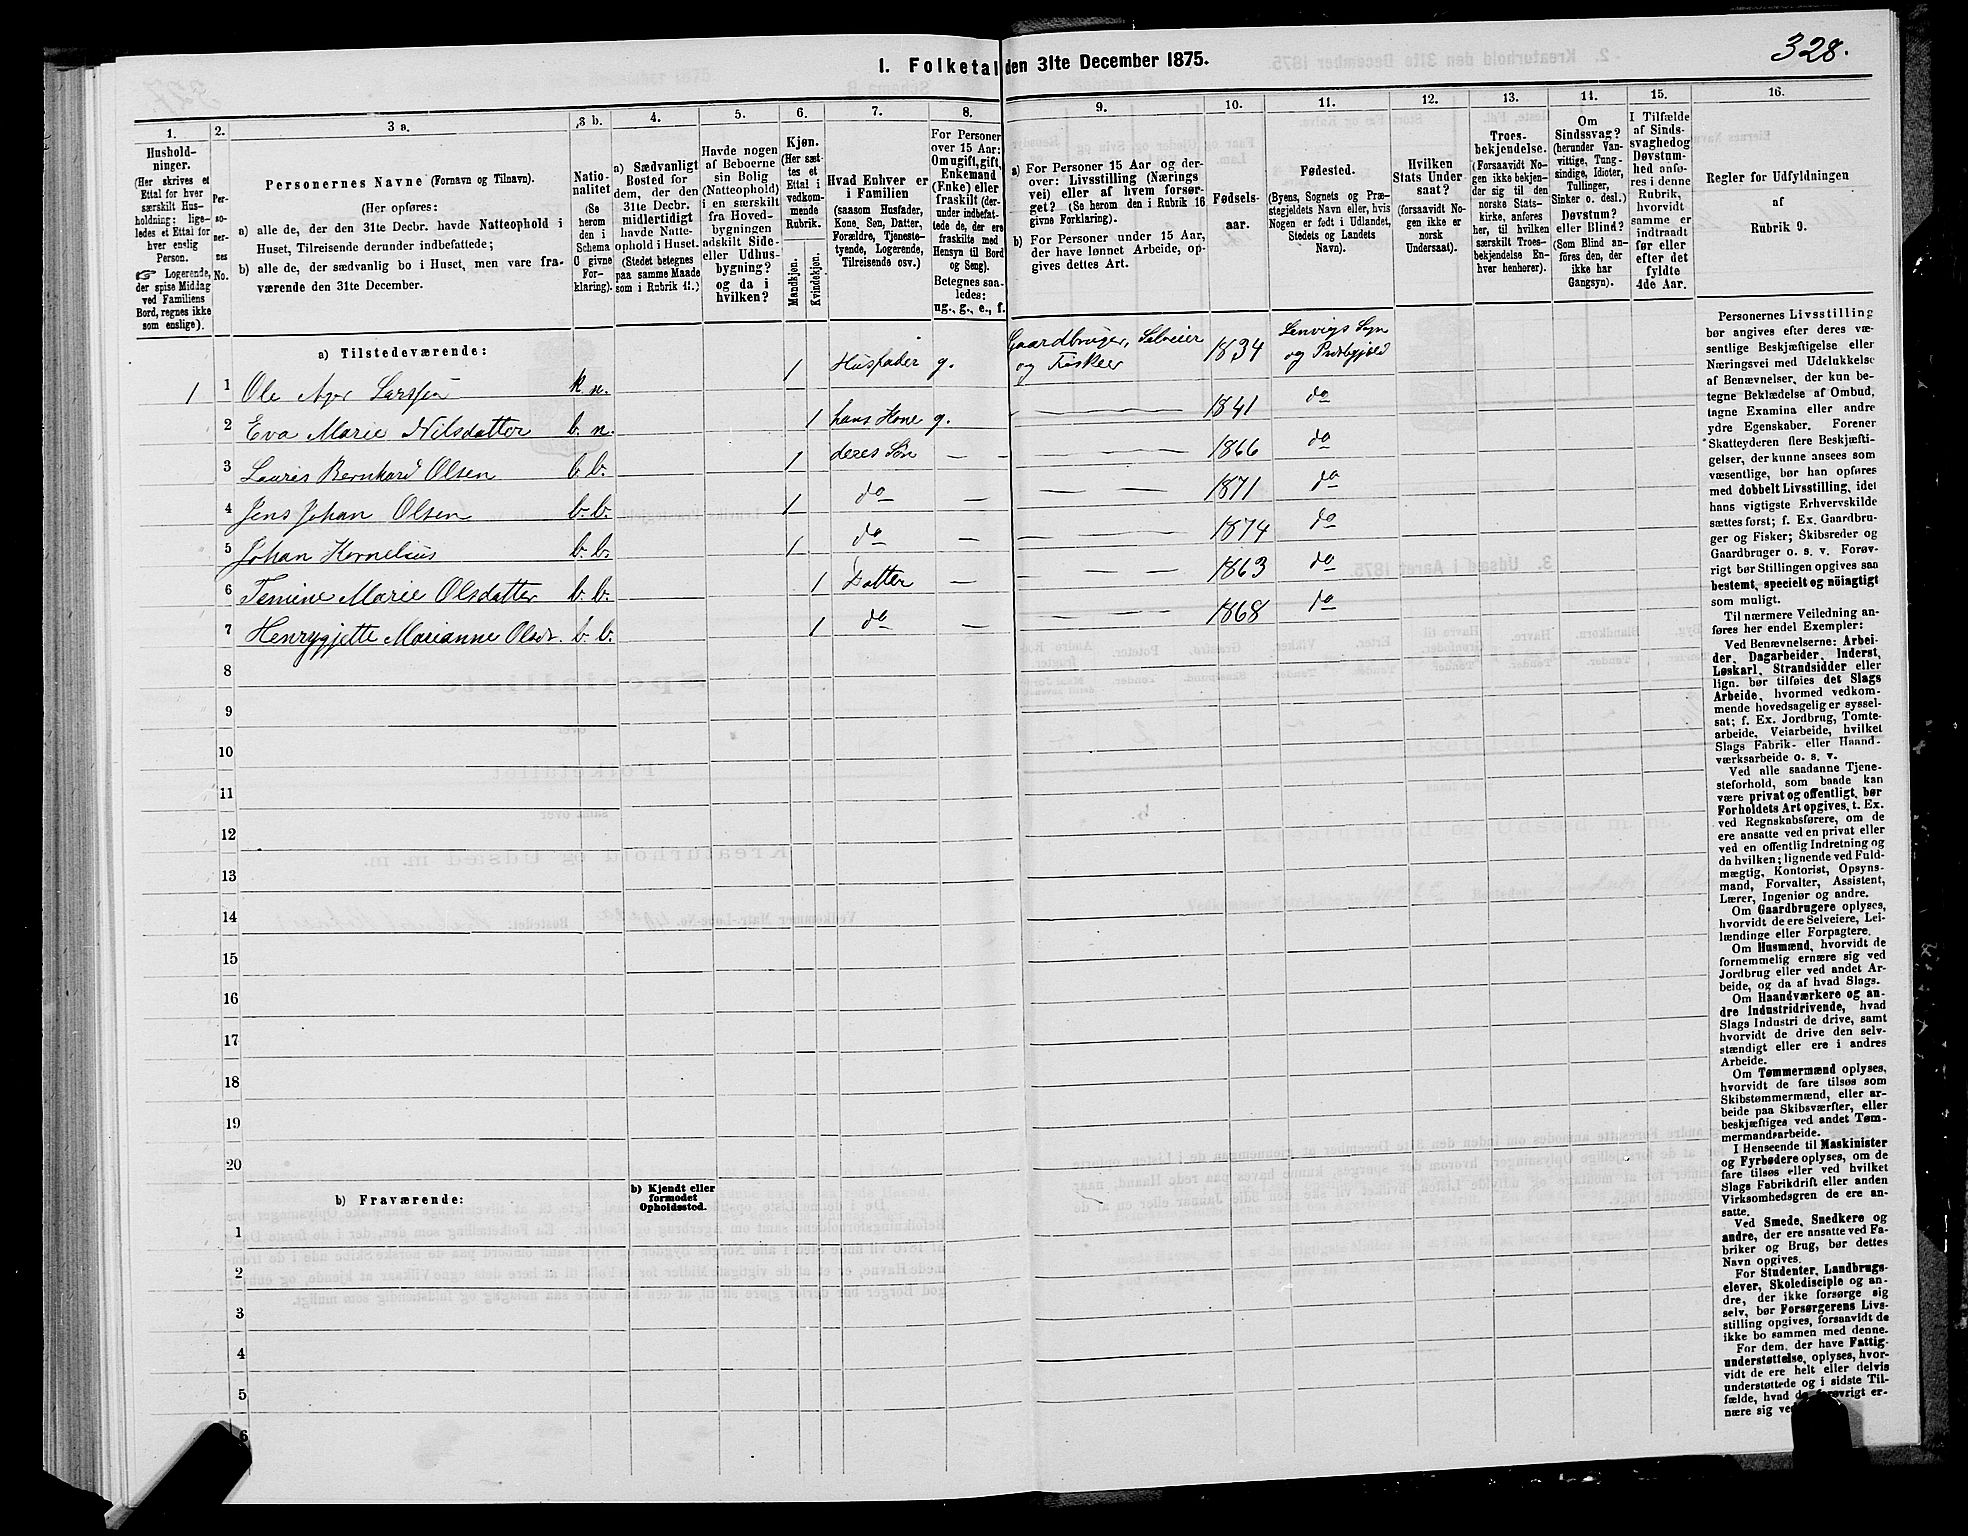 328.
1. Folketal den 31te December 1875.
1.
2.
3 a.
3 b.
4.
5.
6.
7.
8.
9.
10.
11.
12.
13.
14.
15.
16.
Hushold-
ninger.
(Her skrives et
Ettal for hver
særskilt Hus-
holdning; lige-
ledes et Ettal for
hver enslig
Person.
☞ Logerende,
der spise Middag
ved Familiens
Bord, regnes ikke
som enslige).
Per-
so-
ner-
nes
No.
Personernes Navne (Fornavn og Tilnavn).
(Her opføres:
a) alle de, der den 31te Decbr. havde Natteophold i
Huset, Tilreisende derunder indbefattede;
b) alle de, der sædvanlig bo i Huset, men vare fra-
værende den 31te December.
Natio-
nalitet
(Se
herom
den i
Schema
C givne
For-
klaring).
a) Sædvanligt
Bosted for
dem, der den
31te Decbr.
midlertidigt
havde Natte-
ophold i Huset.
(Stedet betegnes
paa samme Maade
som i Rubrik 11.)
Havde nogen
af Beboerne
sin Bolig
(Natteophold)
i en særskilt
fra Hoved-
bygningen
adskilt Side-
eller Udhus-
bygning?
og da i
hvilken?
Kjøn.
(Her sæt-
tes et
Ettal i
vedkom-
mende
Rubrik.
Mandkjøn.
Kvindekjøn.
Hvad Enhver er
i Familien
(saasom Husfader,
Kone, Søn, Datter,
Forældre, Tjeneste-
tyende, Logerende,
Tilreisende osv.)
For Personer
over 15 Aar:
Om ugift, gift,
Enkemand
(Enke) eller
fraskilt (der-
under indbefat-
tede de, der ere
fraskilte med
Hensyn til Bord
og Seng).
Betegnes saa-
ledes:
ng., g., e., f.
a) For Personer 15 Aar og der-
over: Livsstilling (Nærings-
vei) eller af hvem forsør-
get? (Se herom den i Rubrik 16
givne Forklaring).
b) For Personer under 15 Aar,
der have lønnet Arbeide, op-
gives dettes Art.
Fødsels-
aar.
Fødested.
(Byens, Sognets og Præ-
stegjeldets Navn eller, hvis
Nogen er født i Udlandet,
Stedets og Landets
Navn).
Hvilken
Stats Under-
saat?
(forsaavidt No-
gen ikke er
norsk
Undersaat).
Troes-
bekjendelse.
(Forsaavidt No-
gen ikke bekjen-
der sig til den
norske Stats-
kirke, anføres
her, til hvilken
særskilt Troes-
bekjendelse En-
hver henhorer).
Om
Sindssvag?
(herunder Van-
vittige, Tung-
sindige, Idioter,
Tullinger,
Sinker o. desl.)
Døvstum?
eller Blind?
(Som Blind an-
føres den, der
ikke har
Gangsyn).
I Tilfælde
af Sinds-
svaghed og
Døvstum-
hed anfø-
res i denne
Rubrik,
hvorvidt
samme er
indtraadt
før eller
efter det
fyldte
4de Aar.
Regler for Udfyldningen
af
Rubrik 9.
a) Tilstedeværende:
1 1 Ole Ager Larssen k. n. 1 Husfader g. Gaardbruger, Selveier og Fisker 1834 Lenvigs Sogn og Præstegjeld
2 Eva Marie Nilsdatter b. n. 1 hans Kone g. 1841 do
3 Lauris Bernhard Olsen b. b. 1 deres Søn — 1866 do
4 Jens Johan Olsen b. b. 1 do — 1871 do
5 Johan Kornelius b. b. 1 do — 1874 do
6 Temine Marie Olsdatter b. b. 1 Datter — 1863 do
7 Henrygjette Marianne Olsdr. b. b. 1 do — 1868 do
8
9
10
11
12
13
14
15
16
17
18
19
20
b) Fraværende:
b) Kjendt eller
formodet
Opholdssted.
1
2
3
4
5
6
Personernes Livsstilling
bør angives efter deres væ-
sentlige Beskjæftigelse eller
Næringsvei med Udelukkelse
af Benævnelser, der kun be-
tegne Beklædelse af Ombud,
tagne Examina eller andre
ydre Egenskaber. Forener
Skatteyderen flere Beskjæfti-
gelser, der kunne ansees som
væsentlige, bør han opføres
med dobbelt Livsstilling, idet
hans vigtigste Erhvervskilde
sættes først; f. Ex. Gaardbru-
ger og Fisker; Skibsreder og
Gaardbruger o. s. v. Forøv-
rigt bør Stillingen opgives saa
bestemt, specielt og nöiagtigt
som muligt.
Til nærmere Veiledning an-
føres her endel Exempler:
Ved Benævnelserne: Arbei-
der, Dagarbeider, Inderst,
Løskarl, Strandsidder eller
lign. bør tilføies det Slags
Arbeide, hvormed vedkom-
mende hovedsagelig er syssel-
sat; f. Ex. Jordbrug, Tomte-
arbeide, Veiarbeide, hvilket
Slags Fabrik- eller Haand-
værksarbeide o. s. v.
Ved alle saadanne Tjene-
steforhold, som baade kan
være privat og offentligt, bør
Forholdets Art opgives, t. Ex.
ved Regnskabsførere, om de
ere ansatte ved en privat eller
ved en offentlig Indretning og
da hvilken; lignende ved Fuld-
mægtig, Kontorist, Opsyns-
mand, Forvalter, Assistent,
Lærer, Ingeniør og andre.
Om Gaardbrugere oplyses,
hvorvidt de ere Selveiere, Lei-
lændinge eller Forpagtere.
Om Husmænd, hvorvidt de
fornemmelig ernære sig ved
Jordbrug eller ved andet Ar-
beide, og da af hvad Slags.
Om Haandværkere og an-
dre Industridrivende, hvad
Slags Industri de drive, samt
hvorvidt de drive den selv-
stændigt eller ere i andres
Arbeide.
Om Tømmermænd oplyses,
hvorvidt de fare tilsøs som
Skibstømmermænd, eller ar-
beide paa Skibsværfter, eller
beskjæftiges ved andet Tøm-
mermandsarbeide.
I Henseende til Maskinister
og Fyrbødere oplyses, om de
fare tilsøs eller ved hvilket
Slags Fabrikdrift eller anden
Virksomhedsgren de ere an-
satte.
Ved Smede, Snedkere og
andre, der ere ansatte ved Fa-
briker og Brug, bør dettes
Navn opgives.
For Studenter, Landbrugs-
elever, Skoledisciple og an-
dre, der ikke forsørge sig
selv, bør Forsørgerens Livs-
stilling opgives, forsaavidt de
ikke bo sammen med denne.
For dem, der have Fattig-
understøttelse, oplyses, hvor-
vidt de ere helt eller delvis
understøttede og i sidste Til-
fælde, hvad de forøvrigt er-
nære sig